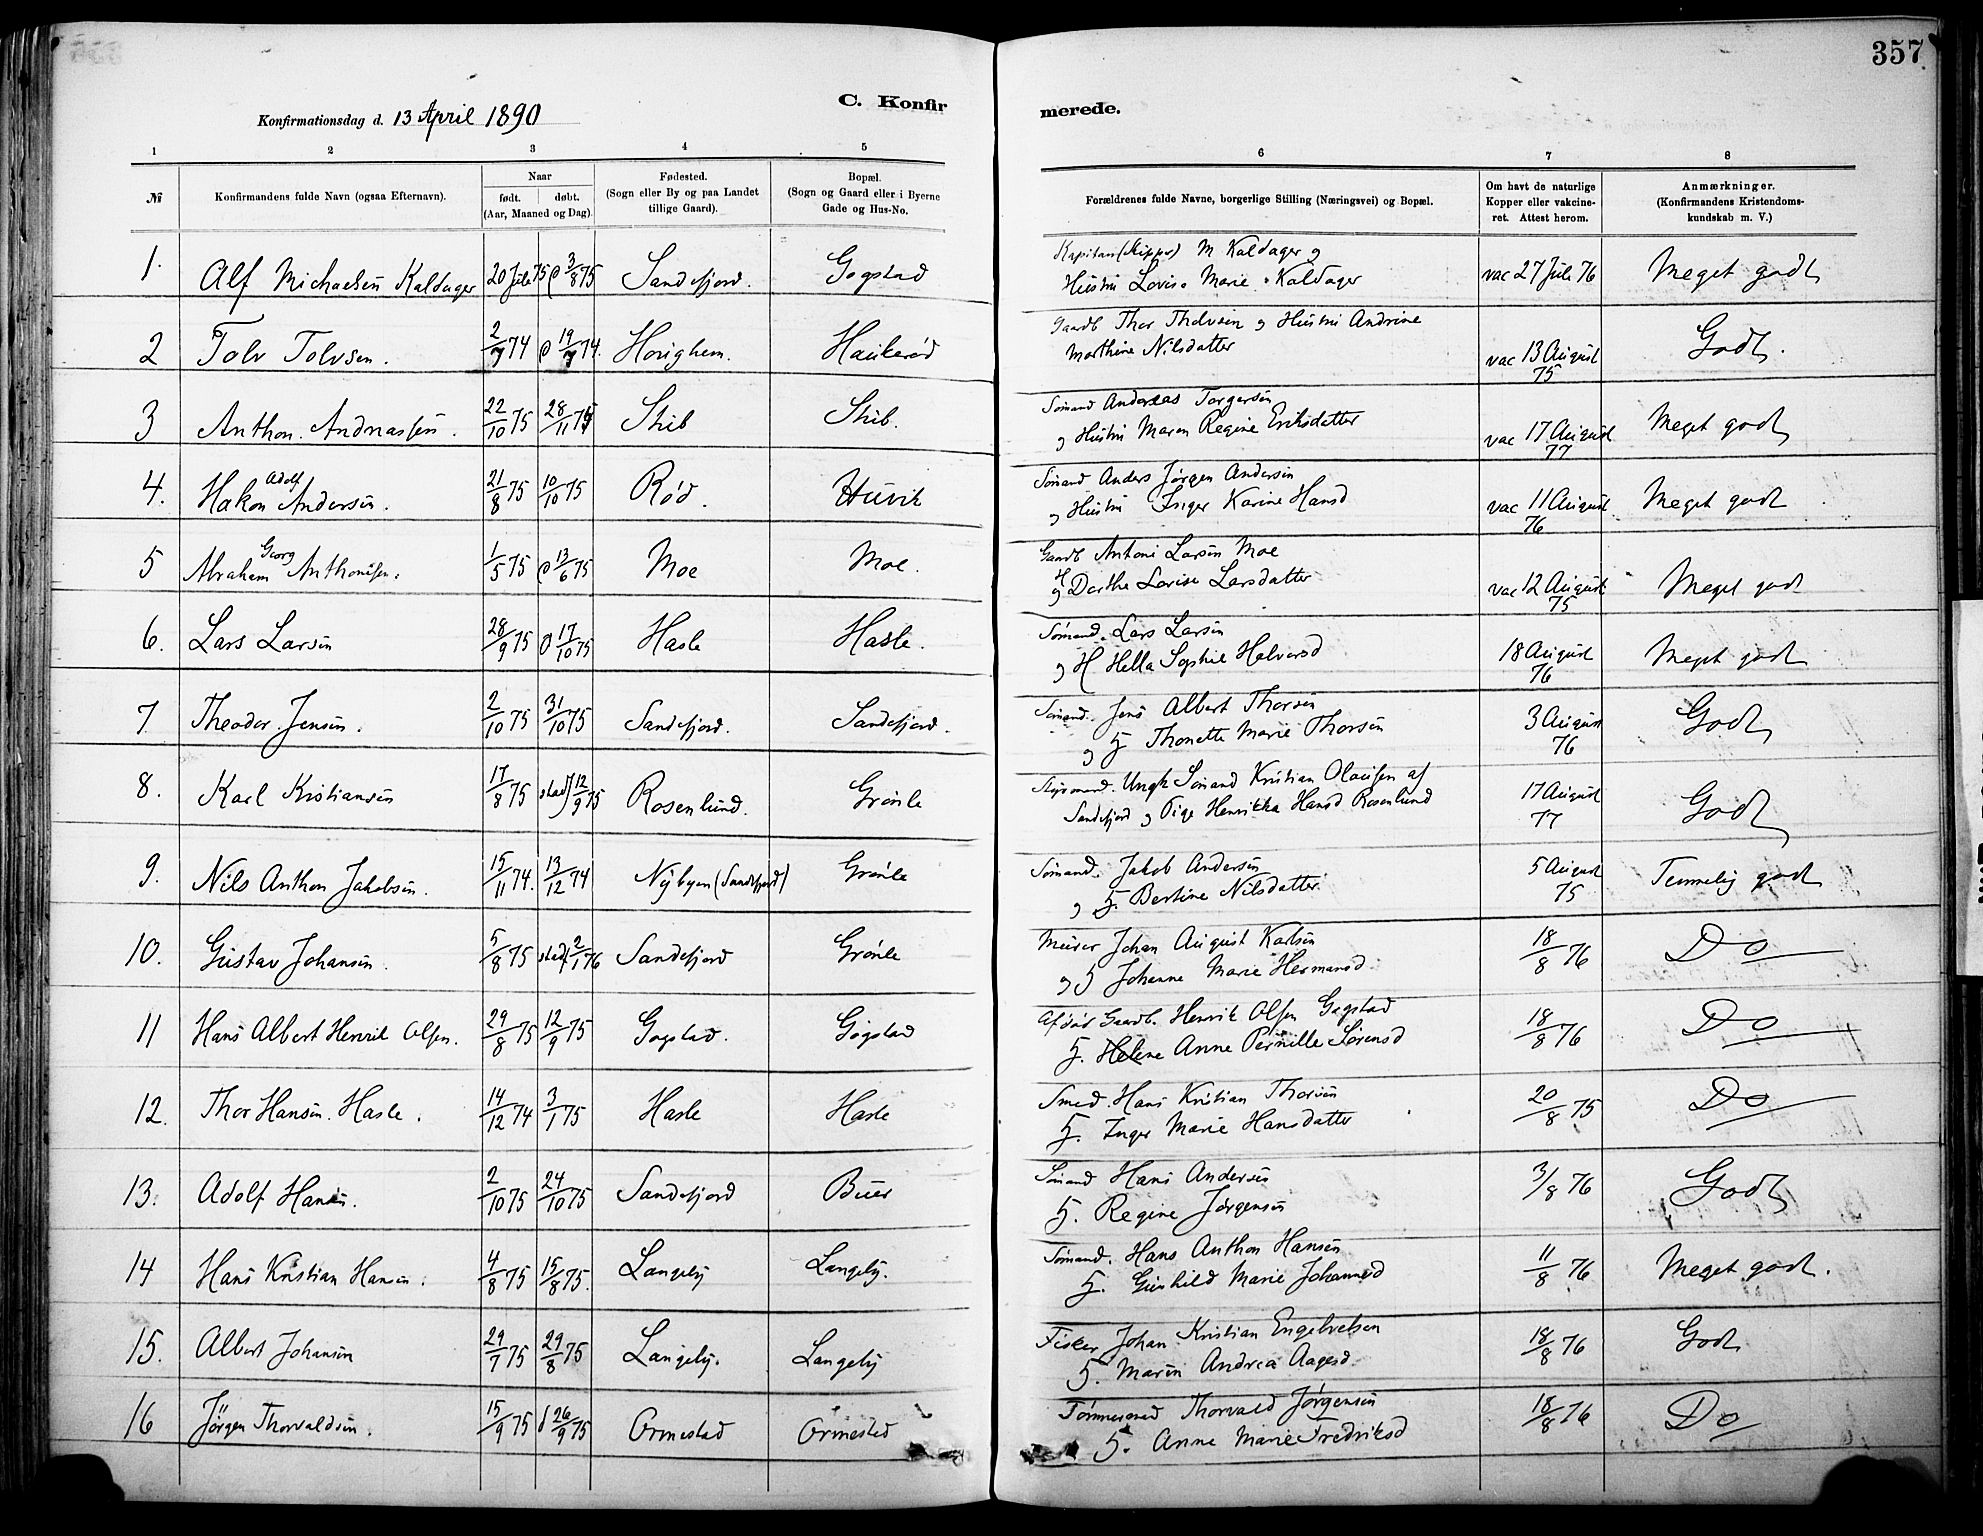 357
C. Konfirmerede.
Konfirmationsdag d. 13 April 1890
1 2 3 4 5 6 7 8
№
Konfirmandens fulde Navn (ogsaa Efternavn).
Naar
født. døbt.
(Aar, Maaned og Dag)
Fødested.
(Sogn eller By og paa Landet
tillige Gaard).
Bopæl.
(Sogn og Gaard eller i Byerne
Gade og Hus-No.
Forældrenes fulde Navne, borgerlige Stilling (Næringsvei) og Bopæl.
Om havt de naturlige
Kopper eller vakcine-
ret. Attest herom.
Anmærkninger.
(Konfirmandens Kristendoms-
kundskab m. V.)
1. Alf Michaelsen Kaldager 20 Juli 75 3/8 75 Sandefjord. Gogstad
Kapitan (Skipper) M Kaldager og
Hustru Lovise Marie Kaldager vac 27 Juli 76 Meget godt
2 Tolv Tolvsen. 2/7 74 19/7 74. Haukerød
Gaardb Thor Tholvsen og Hustru Andrine
Marthine Nilsdatter vac 13 August 75 Godt.
3 Anthon Andreassen. 22/10 75 28/11 75 Stub Stub.
Sømand Andreas Torgersen
og Hustru Maren Regine Eriksdatter vac 17 August 77 Meget godt
4. Hakon Adolf Andersen. 21/8 75 10/10 75 Rød. Huvik
Sømand Anders Jørgen Andersen
og Hustru Inger Karine Hansd vac 11 August 76 Meget godt
5 Abraham Georg Anthonisen. 1/5 75 13/6 75 Moe Moe.
Gaardb Antoni Larsen Moe
og H Dorthe Lovise Larsdatter vac 12 August 75 Meget godt
6. Lars Larsen 28/9 75 17/10 75 Hasle Hasle.
Sømand. Lars Larsen
og H Hella Sophie Halvorsd 18 August 76 Meget godt
7. Theodor Jensen. 2/10 75 31/10 75 Sandefjord. Sandefjord.
Sømand. Jens Albert Thorsen
og H Thonette Marie Thorsen 3 August 76 Godt
8. Karl Kristiansen 17/8 75 stadf 12/9 75 Rosenlund. Grønle
Styrmand. Ungk Sømand Kristian Olausen af
Sandefjord og Pige Henrikka Hansd Rosenlund 17 August 77 Godt
9. Nils Anthon Jakobsen. 15/11 74. 13/12 74 Nybyen (Sandefjord) Grønle
Sømand. Jakob Andersen
og H. Bertine Nilsdatter 5 August 75 Temmelig godt
10. Gustav Johansen. 5/8 75 stadf 2/1 76 Sandefjord Grønle
Murer Johan August Karlsen
og H Johanne Marie Hermansd 18/8 76 Do
11 Hans Albert Henrik Olsen. 29/8 75 12/9 75 Gogstad. Gogstad
Afdød Gaardb. Henrik Olsen Gogstad
H. Helene Anne Pernille Sørensd 18/8 76 Do
12. Thor Hansen Hasle. 14/12 74 3/1 75 Hasle Hasle
Smed. Hans Kristian Thorsen
H. Inger Marie Hansdatter 20/8 75 Do
13. Adolf Hansen. 2/10 75 24/10 75 Sandefjord Buer
Sømand Hans Andersen
H. Regine Jørgensen 3/8 76 Godt
14 Hans Kristian Hansen. 4/8 75 15/8 75. Langeby Langeby.
Sømand. Hans Anthon Hansen
H. Gunhild Marie Johannesd 11/8 76 Meget godt.
15. Albert Johansen 29/7 75 29/8 75 Langeby. Langeby
Fisker Johan Kristian Engelvelsen
H. Maren Andrea Aagesd. 18/8 76 Godt
16 Jørgen Thorvaldsen. 15/9 75 26/9 75 Ormestad Ormestad
Tømmermand Thorvald Jørgensen
H. Anne Marie Fredriksd 18/8 76 Do